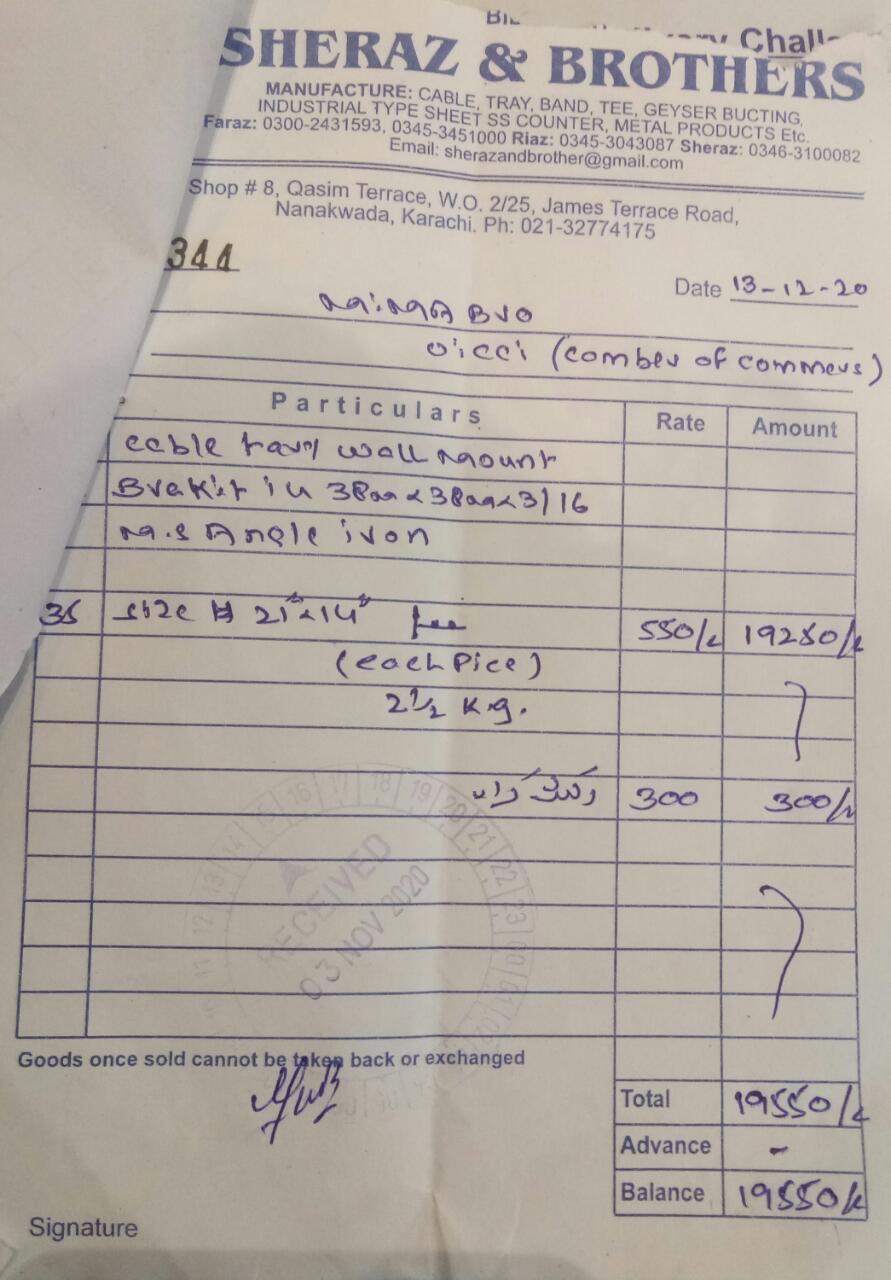 Challa
SHERAZ & BROTHERS
MANUFACTURE: CABLE, TRAY, BAND, TEE, GEYSER BUCTING,
INDUSTRIAL TYPE SHEET SS COUNTER, METAL PRODUCTS Etc.
Faraz: 0300-2431593, 0345-3451000 Riaz: 0345-3043087 Sheraz: 0346-3100082
Email: sherazandbrother@gmail.com
Shop # 8, Qasim Terrace, W.O. 2/25, James Terrace Road,
Nanakwada, Karachi. Ph: 021-32774175
344
Date 13-12-20
Bro
oicci (comber of commers)
Particulars Rate Amount
cable tary wall mount
Brakit in 38mm x 38mm x 3/16
M.S Angle iron
35 size 21" x 14" 550/- 19250/-
(each Pice)
2 1/2 K.g.
رکشہ کرایہ 300 300/-
16 17 18 19 20 21 22 23 00 01
RECEIVED
03 NOV 2020
Goods once sold cannot be taken back or exchanged
Total 19550/-
Advance -
Balance 19550/-
Signature